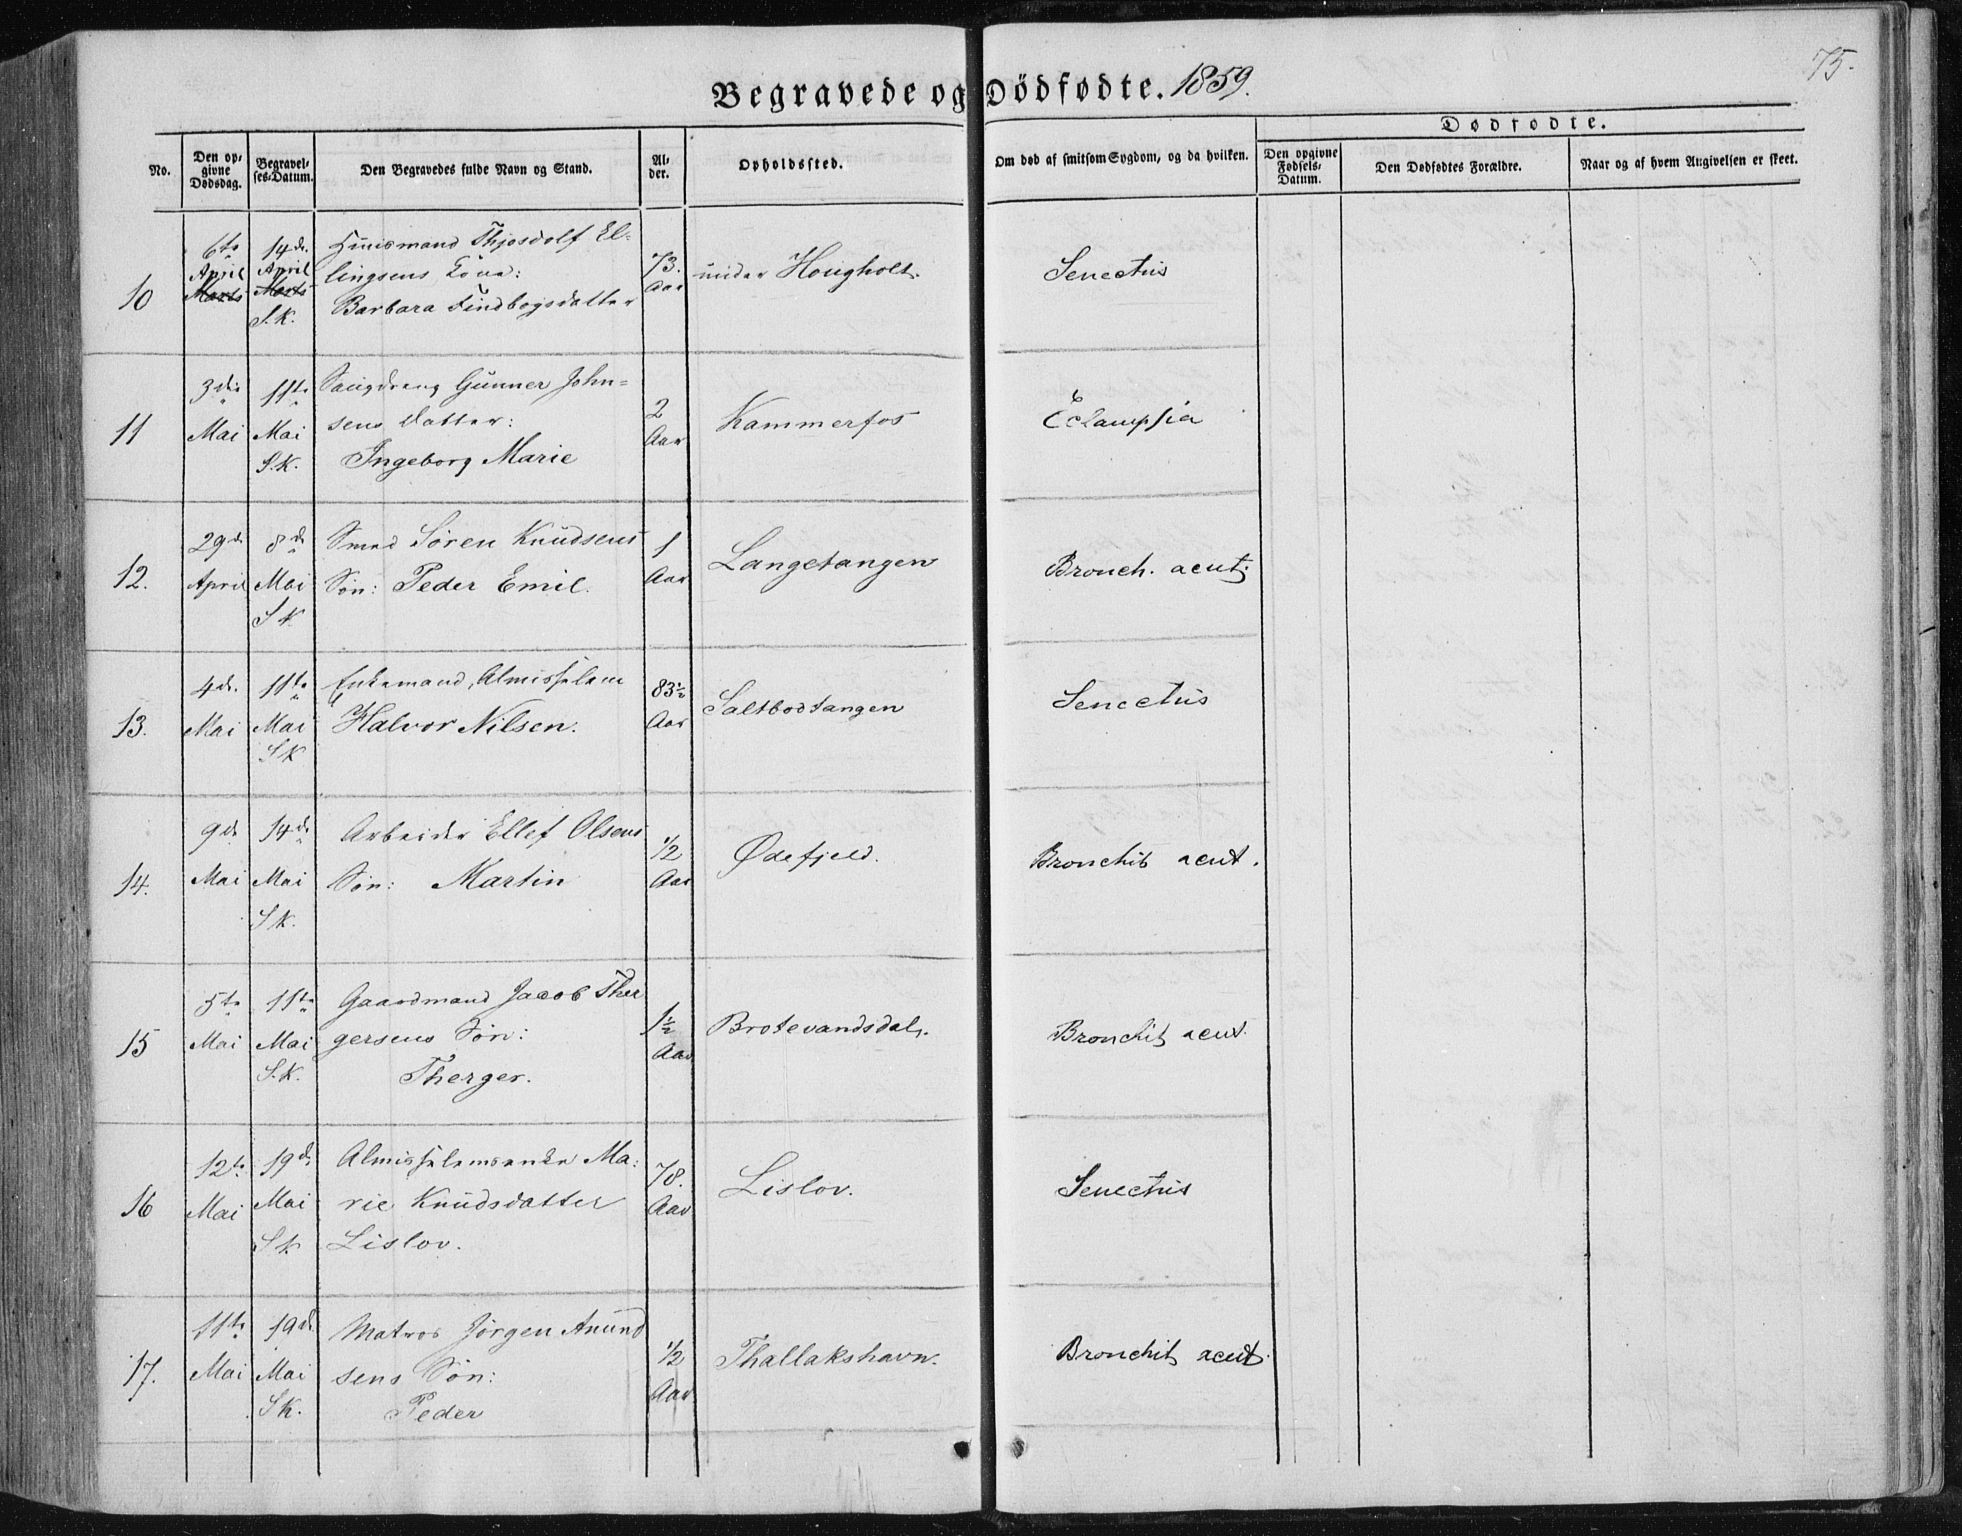 75.
Begravede og Dödfødte. 1859.
No.
Den opgivne Dødsdag.
Begravelses-Datum.
Den Begravedes fulde Navn og Stand.
Alder.
Opholdssted.
Om død af smitsom Sygdom, og da hvilken.
Dødfødte.
Den opgivne Fødsels-Datum.
Den Dødfødtes Forældre.
Naar og af hvem Angivelsen er skeet.
10 6te April Marts 14de April Marts S.K. Huusmand Thjosdolf El-
lingsens Kone:
Barbara Findbogsdatter 73. Aar under Hougholt. Senectus
11 3die Mai 11te Mai S.K. Gunner John-
sens Datter:
Ingeborg Marie 2 Aar Kammerfos Eclampsia
12. 29de April 8de Mai S.K. Smed Søren Knudsens
Søn: Peder Emil. 1 Aar Langetangen Bronch. acut.
13. 4de Mai 11te Mai S.K. Enkemand, Almisselem
Halvor Nilsen. 83½ Aar Saltbodtangen Senectus
14. 9de Mai 14de Mai S.K. Arbeider Ellef Olsens
Søn: Martin ½ Aar Ødefjeld. Bronchit acut.
15 5te Mai 11te Mai S.K. Gaardmand Jacob Ther
gersens Søn:
Therger. 1½ Aar Brotevandsdal. Bronchit acut.
16 12te Mai 19de Mai S.K. Almisselemsenke Ma:
rie Knudsdatter
Lislov. 78. Aar Lislov. Senectus
17. 11te Mai 19de Mai S.K. Matros Jørgen Anund
sens Søn:
Peder ½ Aar Thallakshavn. Bronchit acut.